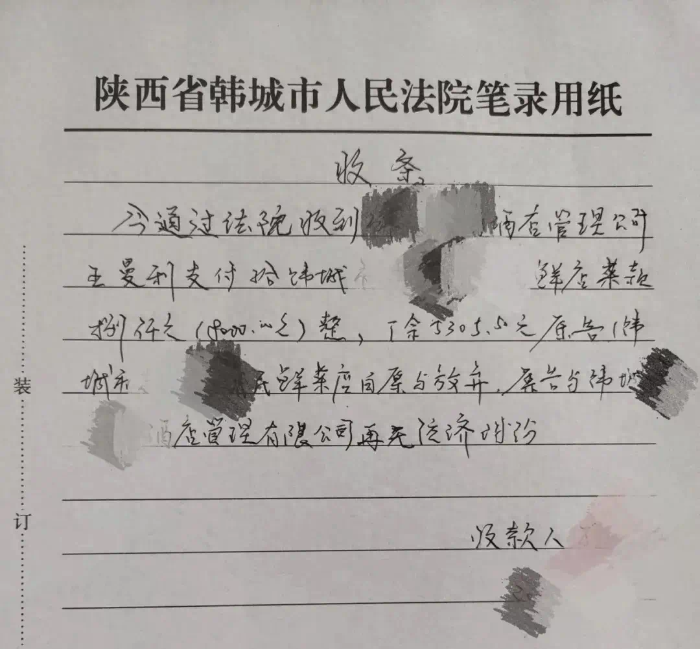 陕西省韩城市人民法院笔录用纸
收条
今通过法院收到 酒店管理公司
王曼利支付给韩城 鲜店菜款
捌仟元(8000.00元)整,下余5305.5元原告(韩
城市 民鲜菜店自愿与放弃,原告与韩城
酒店管理有限公司再无经济纠纷
收款人
装
订